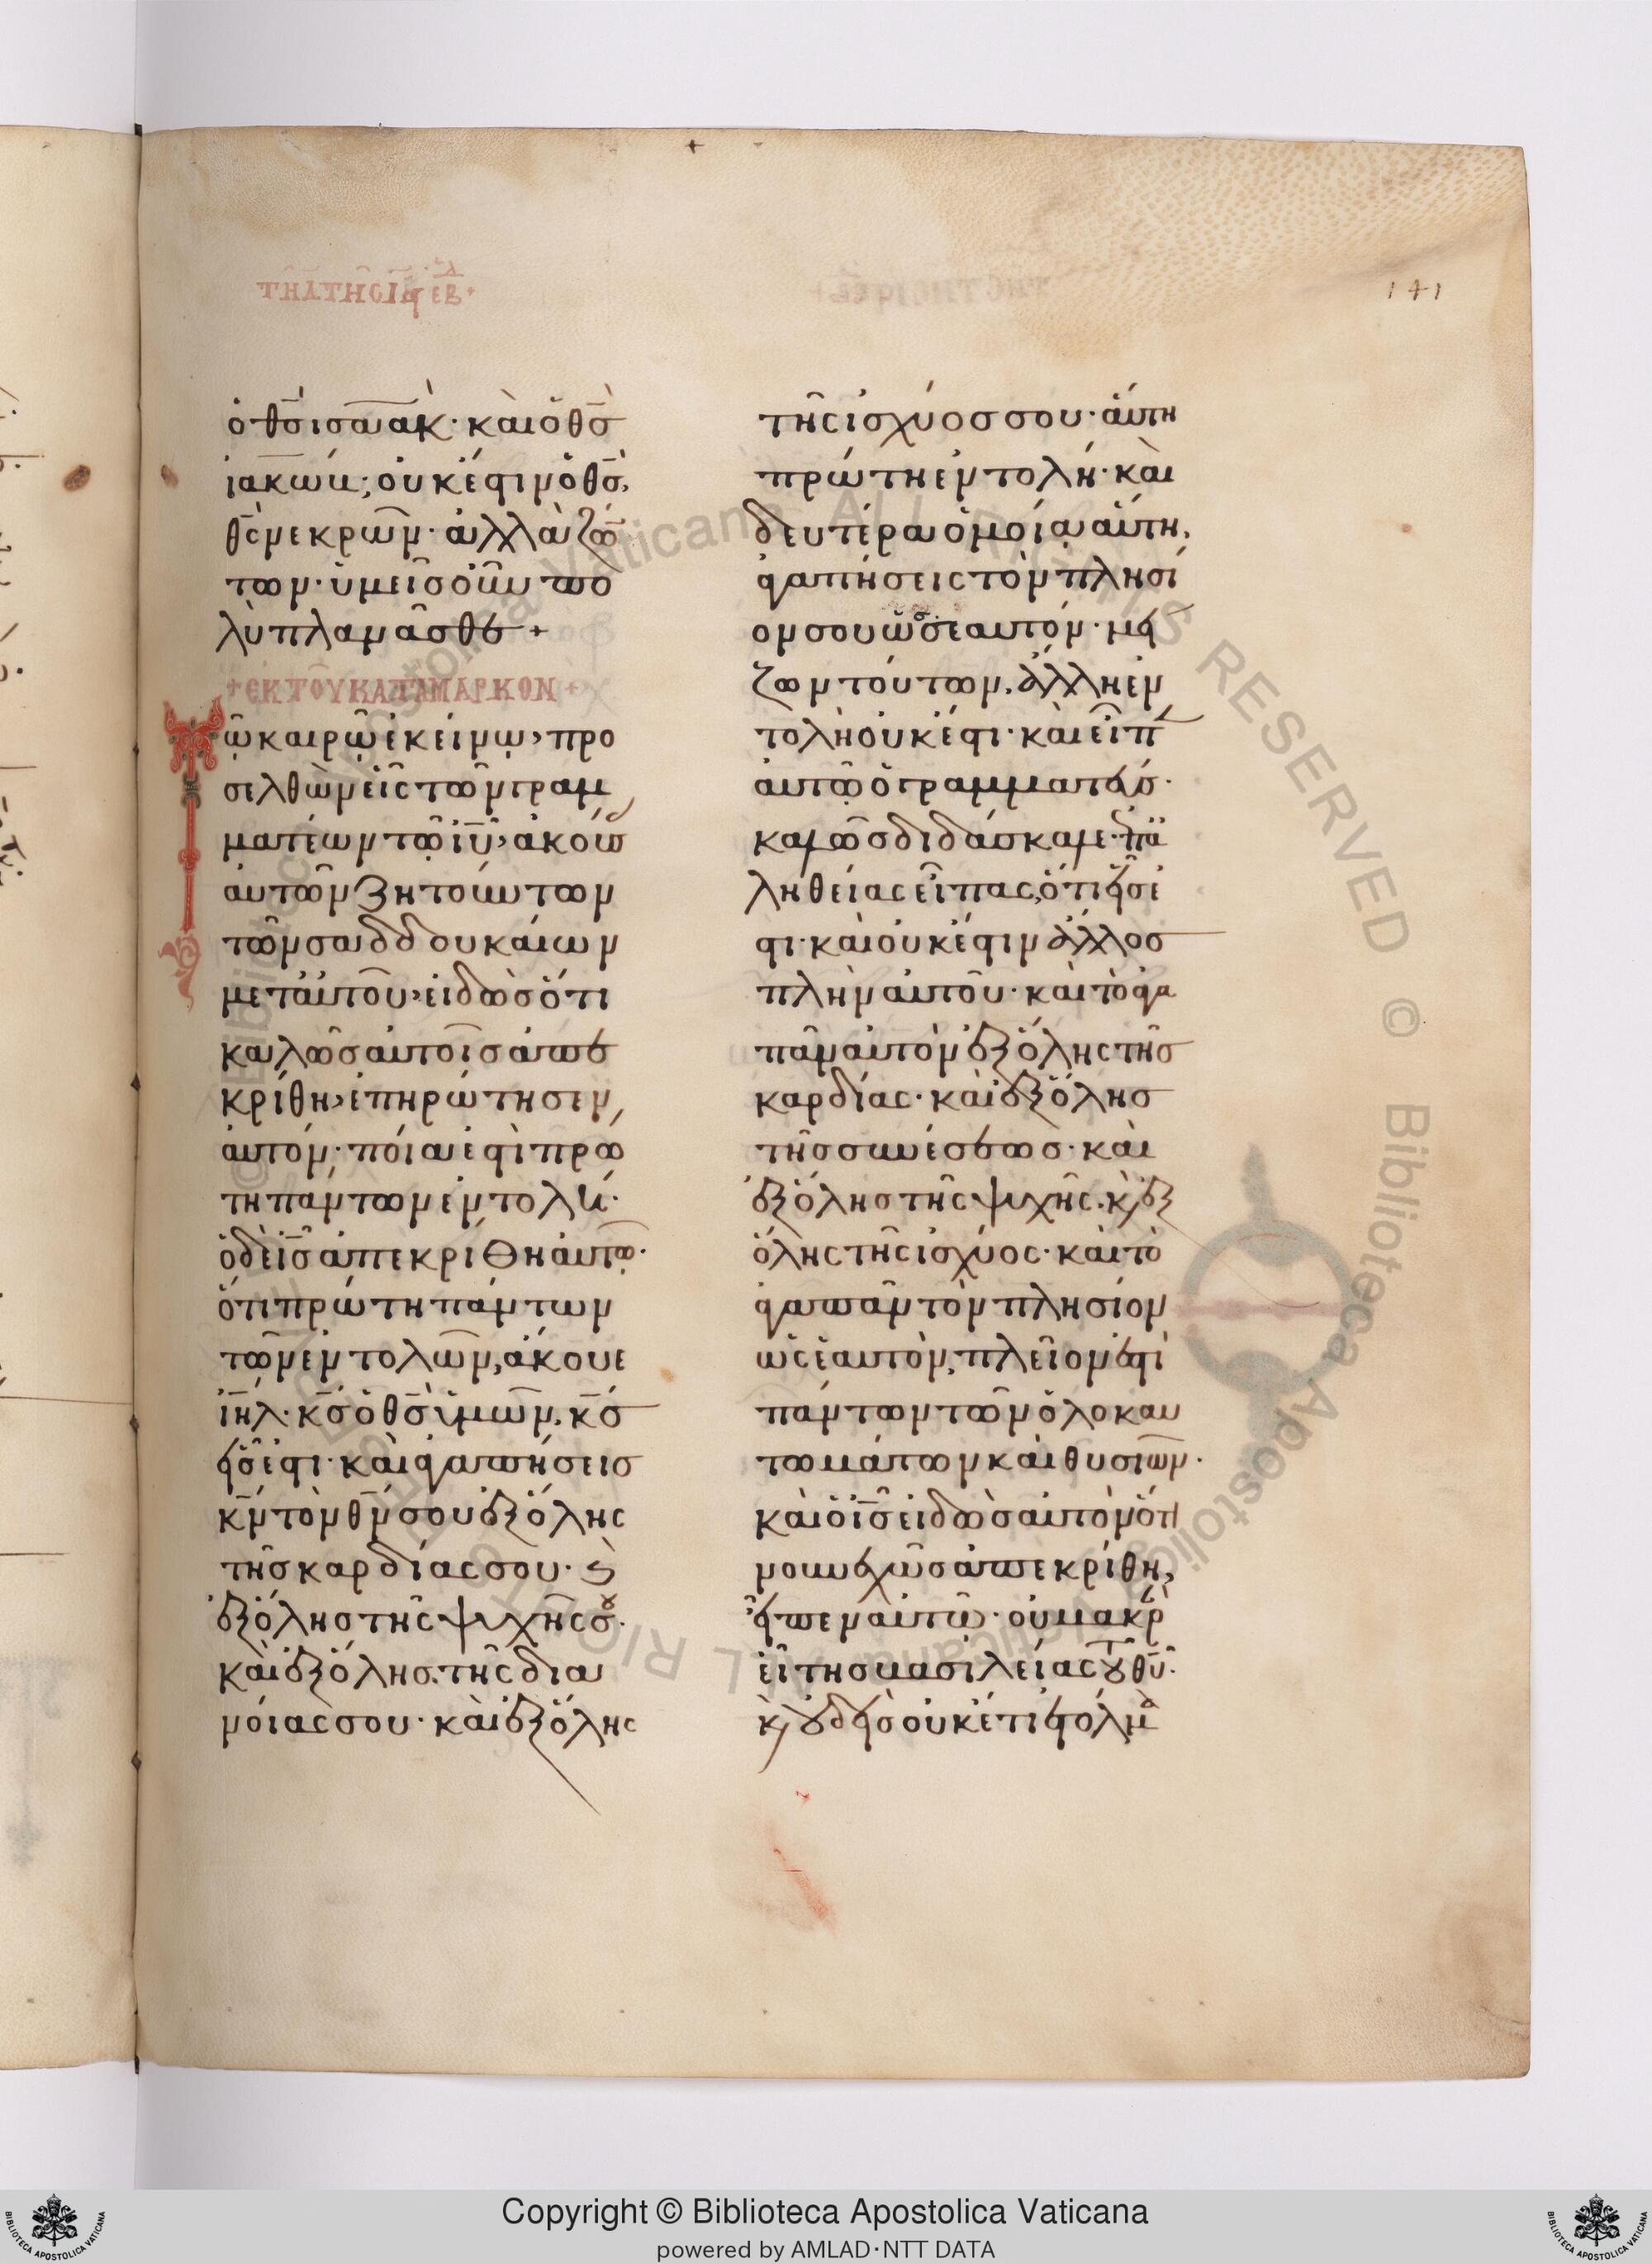 τῆ δ̅ τῆς ι̅ς̅ ἑβ+
141
ὁ θ̅ς̅ ἰσαὰκ· καὶ ὁ θ̅ς̅
ἰακώβ; οὐκ ἔστιν ὁ θ̅ς̅,
θ̅ς̅ νεκρῶν· ἀλλὰ ζώ
των· ὑμεῖς οὖν πο
λὺ πλανᾶσθε +
+ ἐκ τοῦ κατὰ μάρκον +
Τῶ καιρῶ ἐκείνω, προ
σελθὼν εἷς τῶν γραμ
ματέων τῶ ἰ̅υ̅, ἀκούσ
αὐτῶν ζητούντων
τῶν σαδδουκαίων
μετ αὐτοῦ, εἰδὼς ὅτι
καλῶς αὐτοῖς ἀπε
κρίθη, ἐπηρώτησεν
αὐτόν· ποία ἐστὶ πρώ
τη πάντων ἐντολή·
ὁ δὲ ἰ̅ς̅ ἀπεκρίθη αὐτῶ·
ὅτι πρώτη πάντων
τῶν ἐντολῶν, ἄκουε
ἰ̅η̅λ̅· κ̅ς̅ ὁ θ̅ς̅ ὑμῶν, κ̅ς̅
εἷς ἐστι· καὶ ἀγαπήσεις
κ̅ν̅ τὸν θ̅ν̅ σου ἐξ ὅλης
τῆς καρδίας σου· ϛ
ἐξ ὅλης τῆς ψυχῆς σου·
καὶ ἐξ ὅλης τῆς δια
νοίας σου· καὶ ἐξ ὅλης
τῆς ἰσχύος σου· αὕτη
πρώτη ἐντολή· καὶ
δευτέρα ὁμοία αὕτη,
ἀγαπήσεις τὸν πλησί
ον σου ὡς σεαυτόν· μεί
ζων τούτων, ἄλλη ἐν
τολὴ οὐκ ἔστι· καὶ εἶπ
αὐτῶ ὁ γραμματεύς·
καλῶς διδάσκαλε· ἐπ ἀ
ληθείας εἶπας, ὅτι εἷς ἐ
στι· καὶ οὐκ ἔστιν ἄλλος
πλὴν αὐτοῦ· καὶ τὸ ἀγα
πᾶν αὐτὸν ἐξ ὅλης τῆς
καρδίας· καὶ ἐξ ὅλης
τῆς συνέσεως· καὶ
ἐξ ὅλης τῆς ψυχῆς· κ ἐξ
ὅλης τῆς ἰσχύος· καὶ τὸ
ἀγαπᾶν τὸν πλησίον
ὡς ἑαυτὸν, πλεῖον ἐστὶ
πάντων τῶν ὁλοκαυ
τωμάτων καὶ θυσιῶν·
καὶ ὁ ἰ̅ς̅ εἰδὼς αὐτὸν ὅτι
νουνεχῶς ἀπεκρίθη,
εἶπεν αὐτῶ· οὐ μακρ
εἶ τῆς βασιλείας τοῦ θ̅υ̅·
κ οὐδεὶς οὐκέτι ἐτόλμ
Copyright © Biblioteca Apostolica Vaticana
powered by AMLAD·NTT DATA